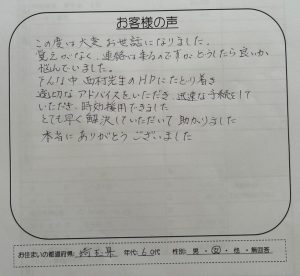 お客様の声
この度は大変お世話になりました。
覚えがなく、連絡は来るのですがどうしたら良いか
悩んでいました。
そんな中西村先生のHPにたどり着き
適切なアドバイスをいただき、迅速な手続をして
いただき、時効援用できました
とても早く解決していただいて助かりました
本当にありがとうございました
お住まいの都道府県: 埼玉県 年代: 60代 性別: 男・女・他・無回答